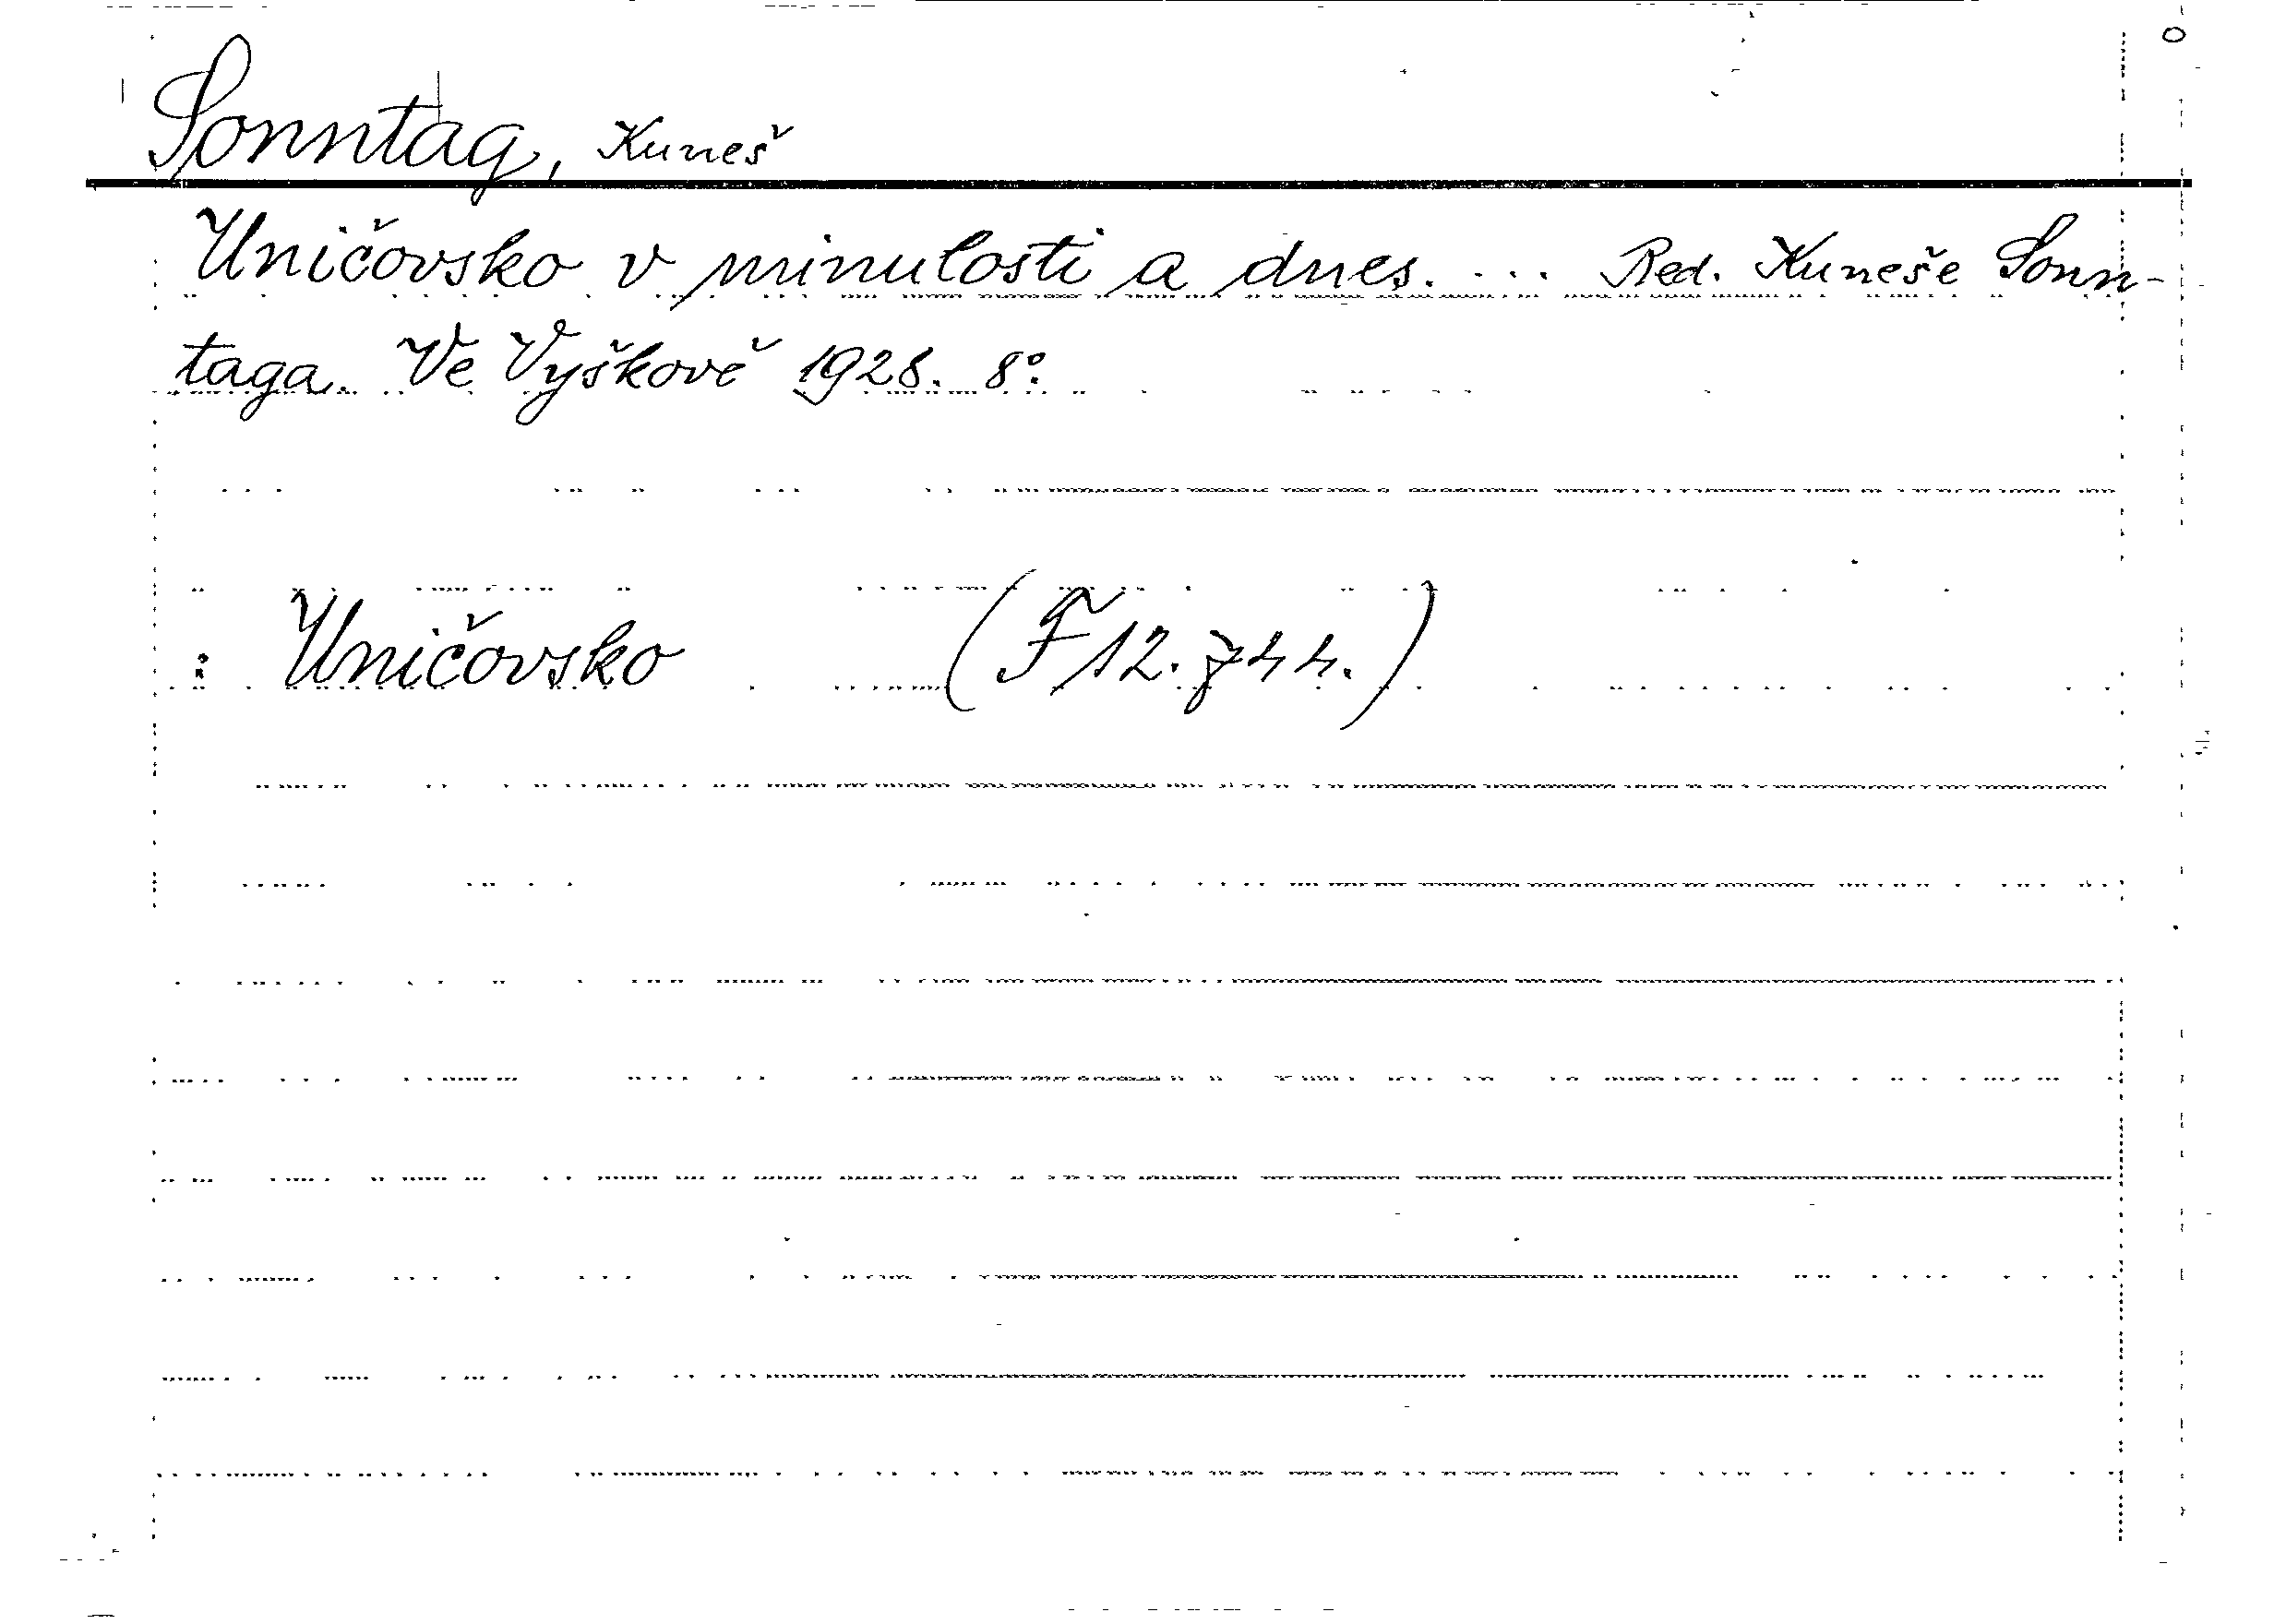 Sonntag, Kuneš
Uničovsko v minulosti a dnes. ... Red. Kuneše Sonn-
taga. Ve Vyškově 1928. 8°.
: Uničovsko (F 12.744.)